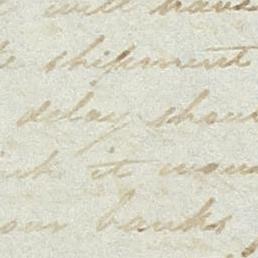 will have
shipment
delay shou
ink it wou
our banks